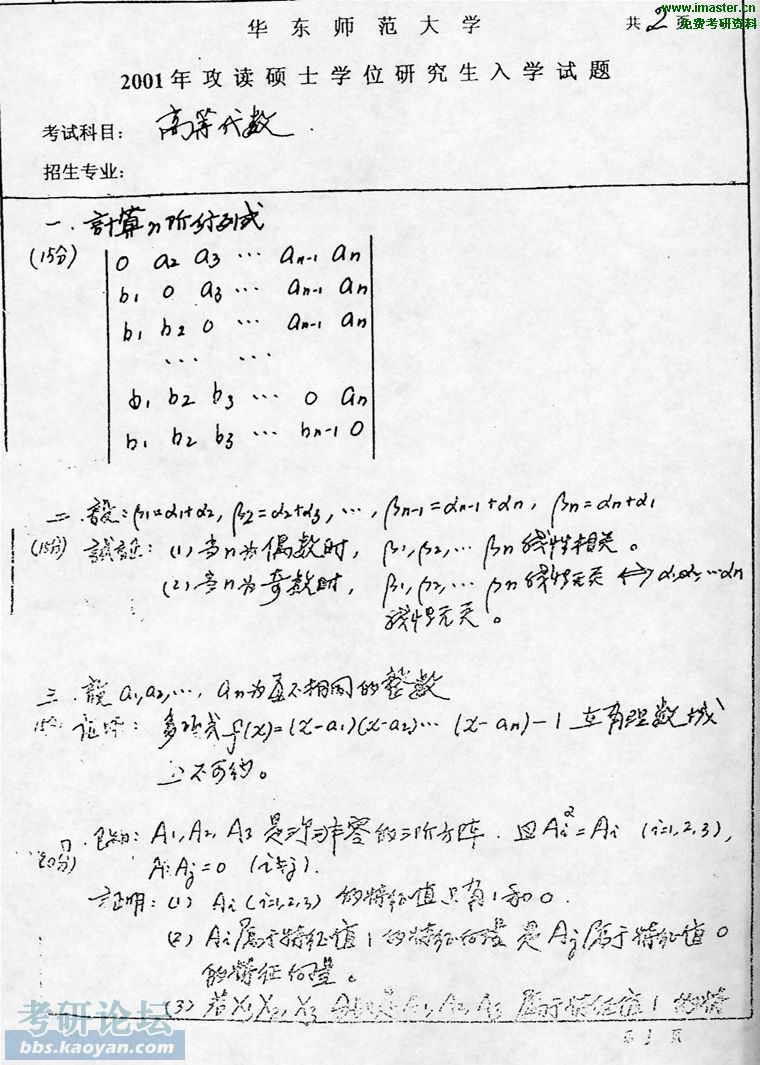 www.imaster.cn
免费考研资料
华东师范大学 共2页
2001年攻读硕士学位研究生入学试题
考试科目: 高等代数.
招生专业:
一.計算n阶行列式
(15分)
0 a2 a3 ⋯ an-1 an
b1 0 a3 ⋯ an-1 an
b1 b2 0 ⋯ an-1 an
⋯ ⋯
b1 b2 b3 ⋯ 0 an
b1 b2 b3 ⋯ bn-1 0
二.設:β1=α1+α2, β2=α2+α3, ⋯, βn-1=αn-1+αn, βn=αn+α1
(15分) 試証: (1) 当n为偶数时, β1,β2,⋯ βn线性相关。
(2) 当n为奇数时, β1,β2,⋯ βn线性无关 ⟺ α1,α2,⋯αn
线性无关。
三.設a1,a2,⋯, an为互不相同的整数
証明: 多项式f(x)=(x-a1)(x-a2)⋯(x-an)-1 在有理数域
上不可约。
已知: A1,A2,A3是三个非零的三阶方阵. 且Ai²=Ai (i=1,2,3),
(20分) AiAj=0 (i≠j).
証明: (1) Ai(i=1,2,3) 的特征值只有1和0.
(2) Ai属于特征值1的特征向量是Aj属于特征值0
的特征向量。
(3) 若X1,X2,X3 分别是A1,A2,A3属于特征值1的特
考研论坛
bbs.kaoyan.com
第1页